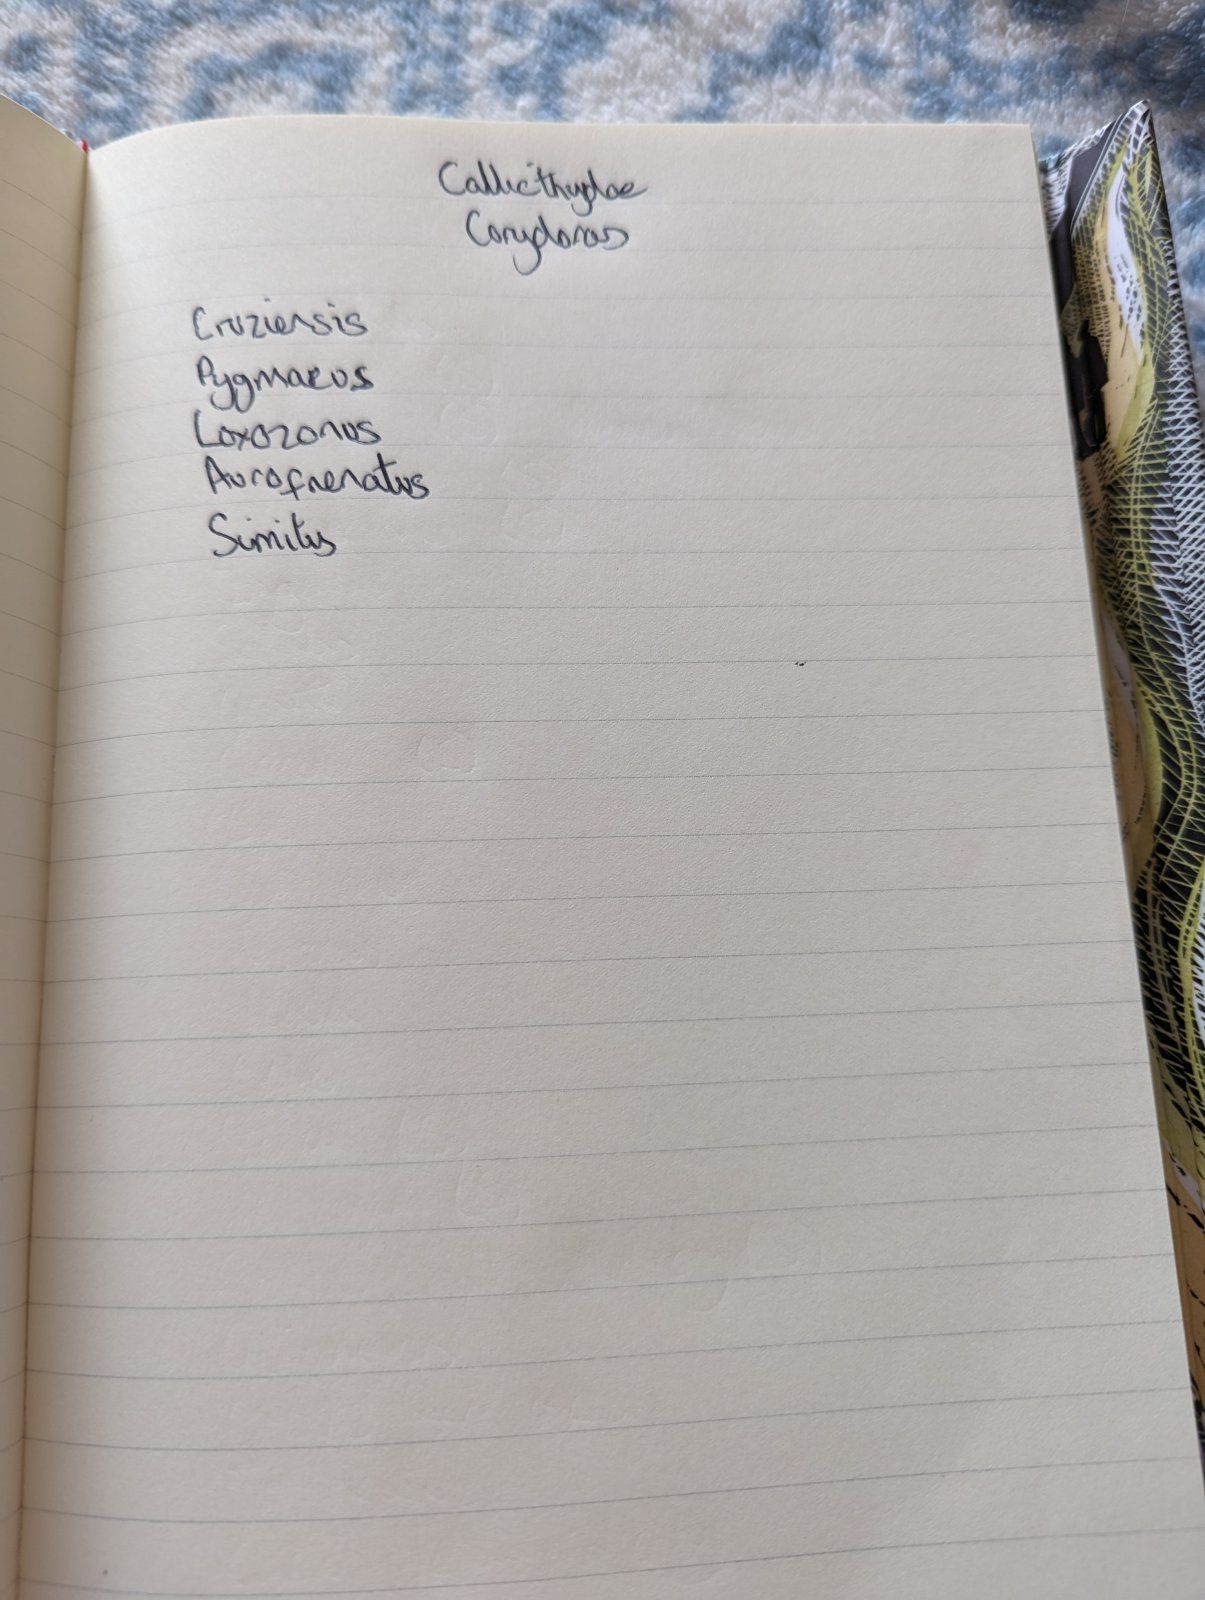 Callicthydae
Corydoras
Cruziensis
Pygmaeus
Loxozonus
Aurofrenatus
Similis